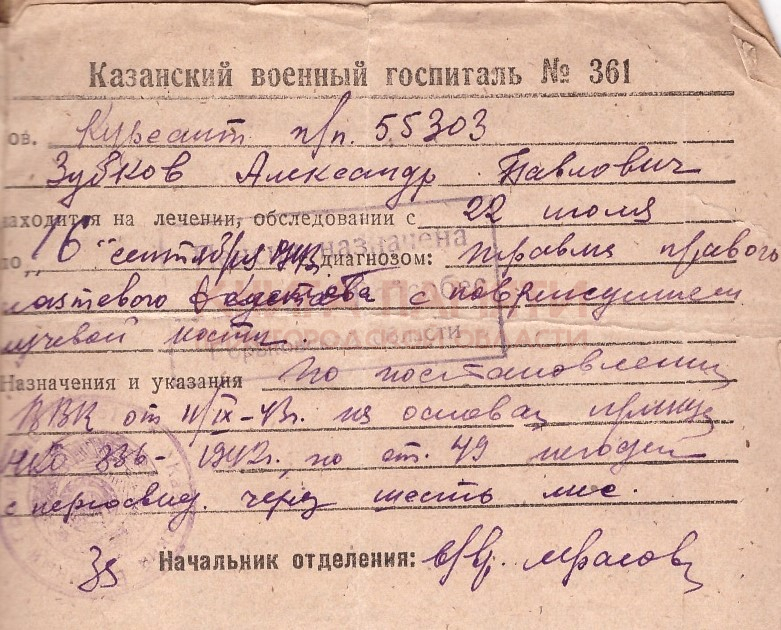 Казанский военный госпиталь № 361
ов. Курсант п/п. 55303
Зубков Александр Павлович
находится на лечении, обследовании с 22 июля
по „16“ сентября 1943 диагнозом: травма правого
локтевого сустава с повреждением
лучевой кости.
Назначения и указания По постановлению
ВВК от 11/IX-43г. на основан приказа
НКО 336-1942г. по ст. 49 негоден
с переосвид. через шесть мес.
Начальник отделения:
назначена
области